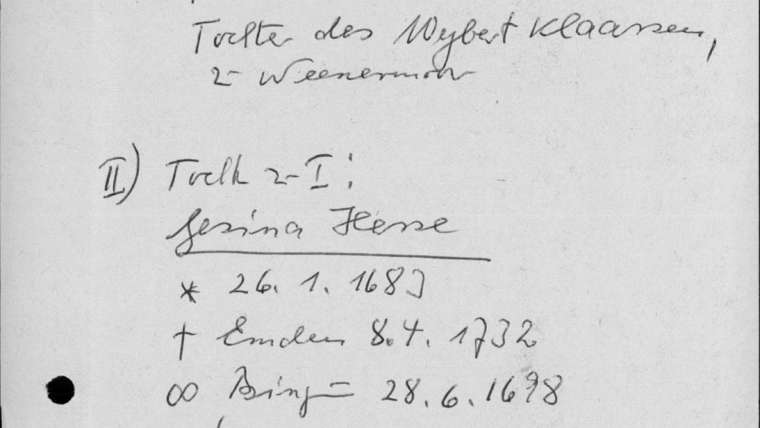 Tochter des Wybert Klaassen,
z. Weenermoor
II) Tocht z. I:
Gesina Hesse
* 26. 1. 1683
† Emden 8.4. 1732
∞ 28. 6. 1698